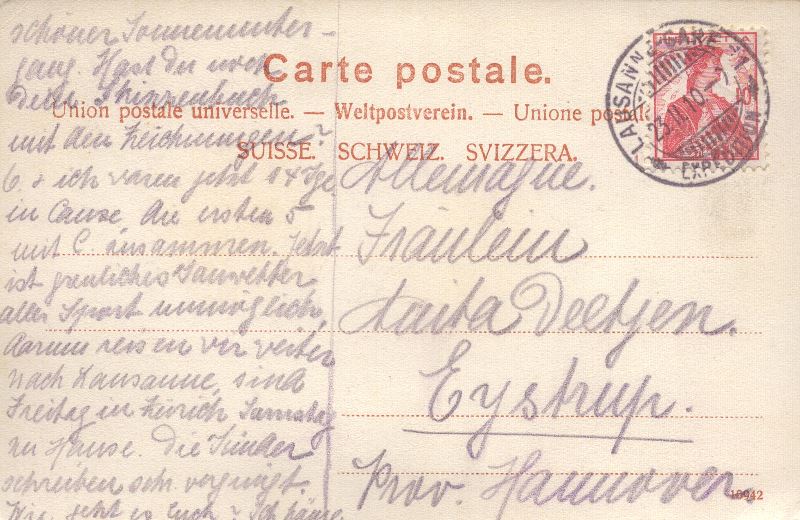 schöner Sonnenunter-
gang. Hast du noch
dein Skizzenbuch
mit den Zeichnungen?
Carte postale.
Union postale universelle. — Weltpostverein. — Unione postale
SUISSE. SCHWEIZ. SVIZZERA.
LAUSANNE GARE
23.II.10
EXPEDITION
10
6. + ich waren jetzt 14 Tge
in Cause die ersten 5
mit C. zusammen. Jetzt
ist greuliches Sauwetter
aller Sport unmöglich,
darum reisen wir weiter
nach Lausanne, sind
Freitag in Zürich Samstag
zu Hause. Die Kinder
schreiben sehr vergnügt.
Wie geht es Euch? Ich
Allemagne.
Fräulein
Deetjen.
Eystrup.
Prov. Hannover.
10942